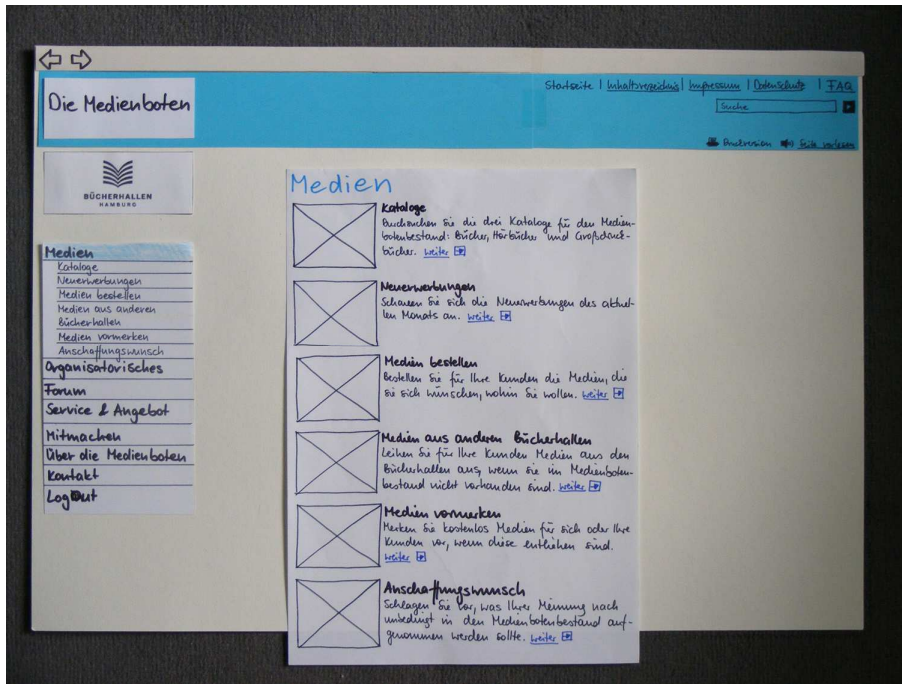 Startseite | Inhaltsverzeichnis | Impressum | Datenschutz | FAQ
Die Medienboten
Suche
Druckversion Seite vorlesen
BÜCHERHALLEN
HAMBURG
Medien
Kataloge
Neuerwerbungen
Medien bestellen
Medien aus anderen
Bücherhallen
Medien vormerken
Anschaffungswunsch
Organisatorisches
Forum
Service & Angebot
Mitmachen
Über die Medienboten
Kontakt
LogOut
Medien
Kataloge
Durchsuchen Sie die drei Kataloge für den Medien-
botenbestand: Bücher, Hörbücher und Großdruck-
bücher. weiter
Neuerwerbungen
Schauen Sie sich die Neuerwerbungen des aktuel-
len Monats an. weiter
Medien bestellen
Bestellen Sie für Ihre Kunden die Medien, die
sie sich wünschen, wohin Sie wollen. weiter
Medien aus anderen Bücherhallen
Leihen Sie für Ihre Kunden Medien aus den
Bücherhallen aus, wenn sie im Medienboten-
bestand nicht vorhanden sind. weiter
Medien vormerken
Merken Sie kostenlos Medien für sich oder Ihre
Kunden vor, wenn diese entliehen sind.
weiter
Anschaffungswunsch
Schlagen Sie vor, was Ihrer Meinung nach
unbedingt in den Medienbotenbestand auf-
genommen werden sollte. weiter